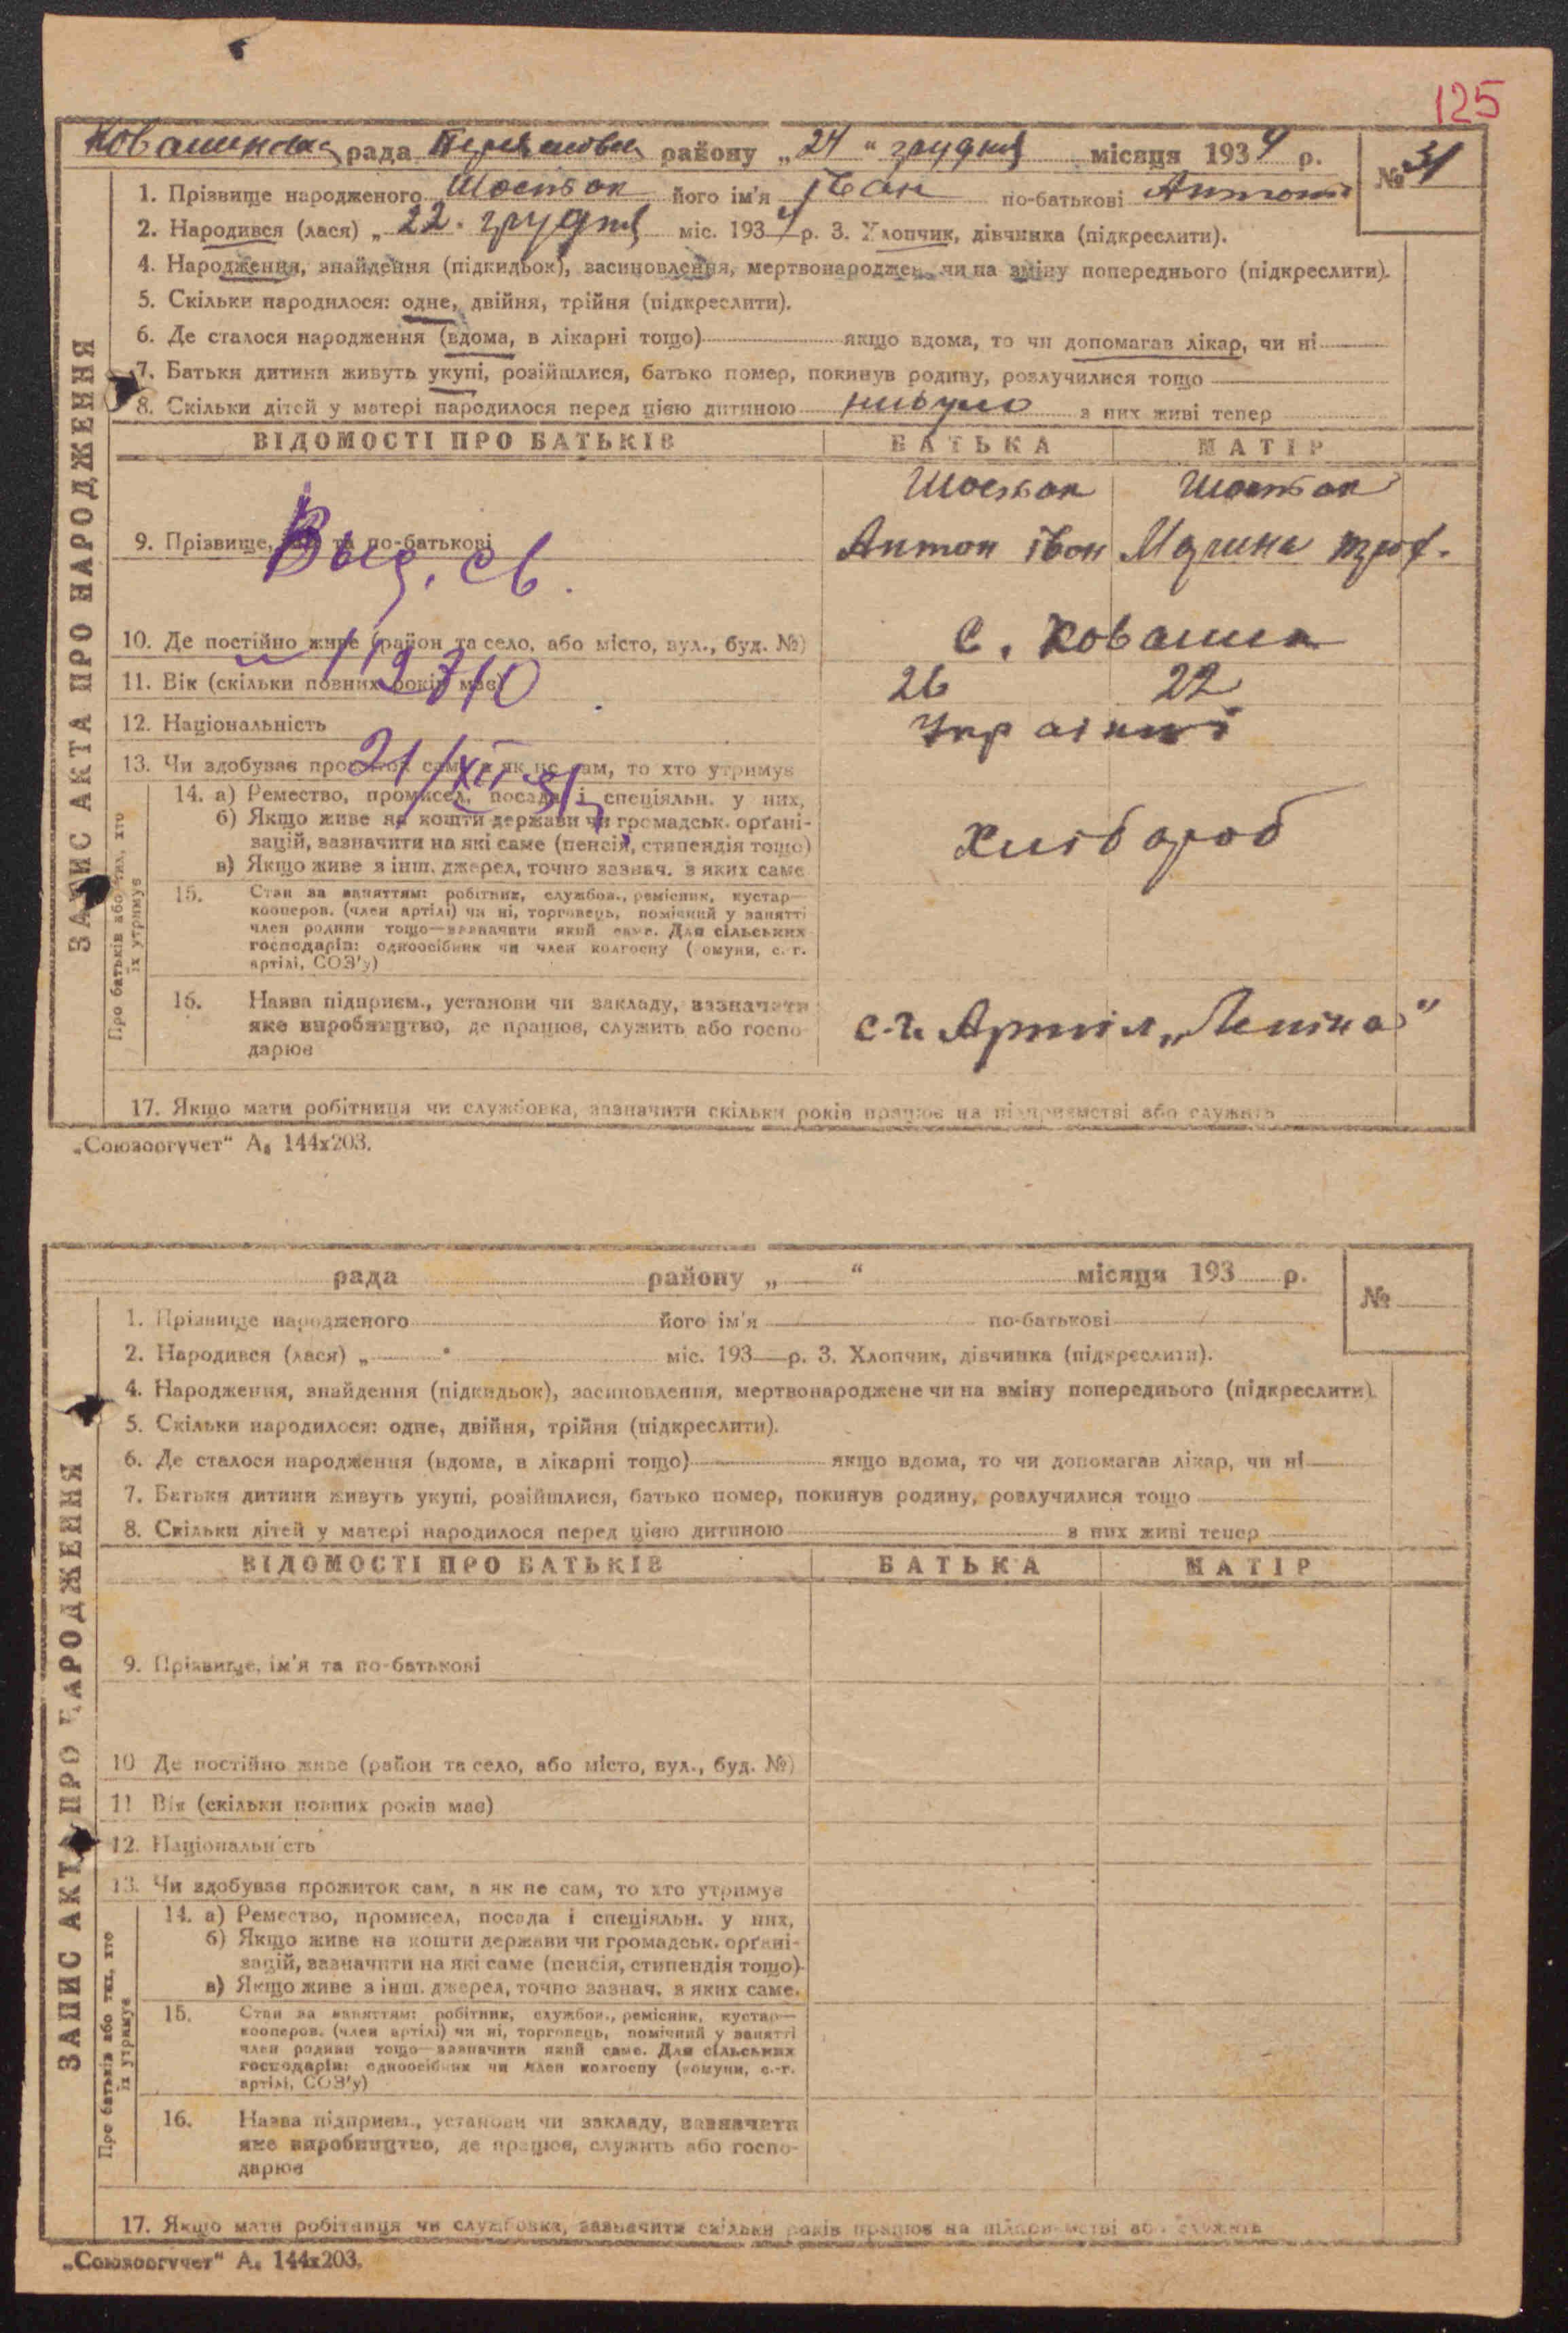 125
рада району „ 24 “ грудня місяця 1934 р.
№ 31
1. Прізвище народженого Шостак його ім'я Іван по-батькові Антон
2. Народився (лася) „ 22. грудня міс. 1934 р. 3. Хлопчик, дівчинка (підкреслити).
4. Народження, знайдення (підкидьок), засиновлення, мертвонароджене чи на зміну попереднього (підкреслити).
5. Скільки народилося: одне, двійня, трійня (підкреслити).
6. Де сталося народження (вдома, в лікарні тощо) якщо вдома, то чи допомагав лікар, чи ні
7. Батьки дитини живуть укупі, розійшлися, батько помер, покинув родину, розлучилися тощо
8. Скільки дітей у матері народилося перед цією дитиною з них живі тепер
ВІДОМОСТІ ПРО БАТЬКІВ БАТЬКА МАТІР
Шостак Шостак
9. Прізвище, ім'я та по-батькові Антон Іван
Выд. св.
10. Де постійно живе (район та село, або місто, вул., буд. №) с.
11. Вік (скільки повних років має) 26 22
12. Національність
13. Чи здобуває прожиток сам, а як не сам, то хто утримує
21/XII
14. а) Ремество, промисел, посада і спеціяльн. у них,
б) Якщо живе на кошти держави чи громадськ. орґані-
зацій, зазначити на які саме (пенсія, стипендія тощо)
в) Якщо живе з інш. джерел, точно зазнач. з яких саме
Хлібороб
15. Стан за заняттям: робітник, службов., ремісник, кустар—
кооперов. (член артілі) чи ні, торговець, помічний у занятті
член родини тощо—зазначити який саме. Для сільських
господарів: одноосібник чи член колгоспу (комуни, с.-г.
артілі, СОЗ'у)
16. Назва підприєм., установи чи закладу, зазначити
яке виробництво, де працює, служить або госпо-
дарює
с-г. Артіл „Леніна“
17. Якщо мати робітниця чи службовка, зазначити скільки років працює на підприємстві або служить
ЗАПИС АКТА ПРО НАРОДЖЕННЯ
Про батьків або тих, хто
їх утримує
„Союзоргучет“ А₈ 144х203.
рада району „ “ місяця 193 р.
№
1. Прізвище народженого його ім'я по-батькові
2. Народився (лася) „ “ міс. 193 р. 3. Хлопчик, дівчинка (підкреслити).
4. Народження, знайдення (підкидьок), засиновлення, мертвонароджене чи на зміну попереднього (підкреслити).
5. Скільки народилося: одне, двійня, трійня (підкреслити).
6. Де сталося народження (вдома, в лікарні тощо) якщо вдома, то чи допомагав лікар, чи ні
7. Батьки дитини живуть укупі, розійшлися, батько помер, покинув родину, розлучилися тощо
8. Скільки дітей у матері народилося перед цією дитиною з них живі тепер
ВІДОМОСТІ ПРО БАТЬКІВ БАТЬКА МАТІР
9. Прізвище, ім'я та по-батькові
10 Де постійно живе (район та село, або місто, вул., буд. №)
11 Вік (скільки повних років має)
12. Національність
13. Чи здобуває прожиток сам, а як не сам, то хто утримує
14. а) Ремество, промисел, посада і спеціяльн. у них,
б) Якщо живе на кошти держави чи громадськ. орґані-
зацій, зазначити на які саме (пенсія, стипендія тощо)
в) Якщо живе з інш. джерел, точно зазнач. з яких саме.
15. Стан за заняттям: робітник, службов., ремісник, кустар—
кооперов. (член артілі) чи ні, торговець, помічний у занятті
член родини тощо—зазначити який саме. Для сільських
господарів: одноосібник чи член колгоспу (комуни, с.-г.
артілі, СОЗ'у)
16. Назва підприєм., установи чи закладу, зазначити
яке виробництво, де працює, служить або госпо-
дарює
17. Якщо мати робітниця чи службовка, зазначити скільки років працює на підприємстві або служить
ЗАПИС АКТА ПРО НАРОДЖЕННЯ
Про батьків або тих, хто
їх утримує
„Союзоргучет“ А₈ 144х203.